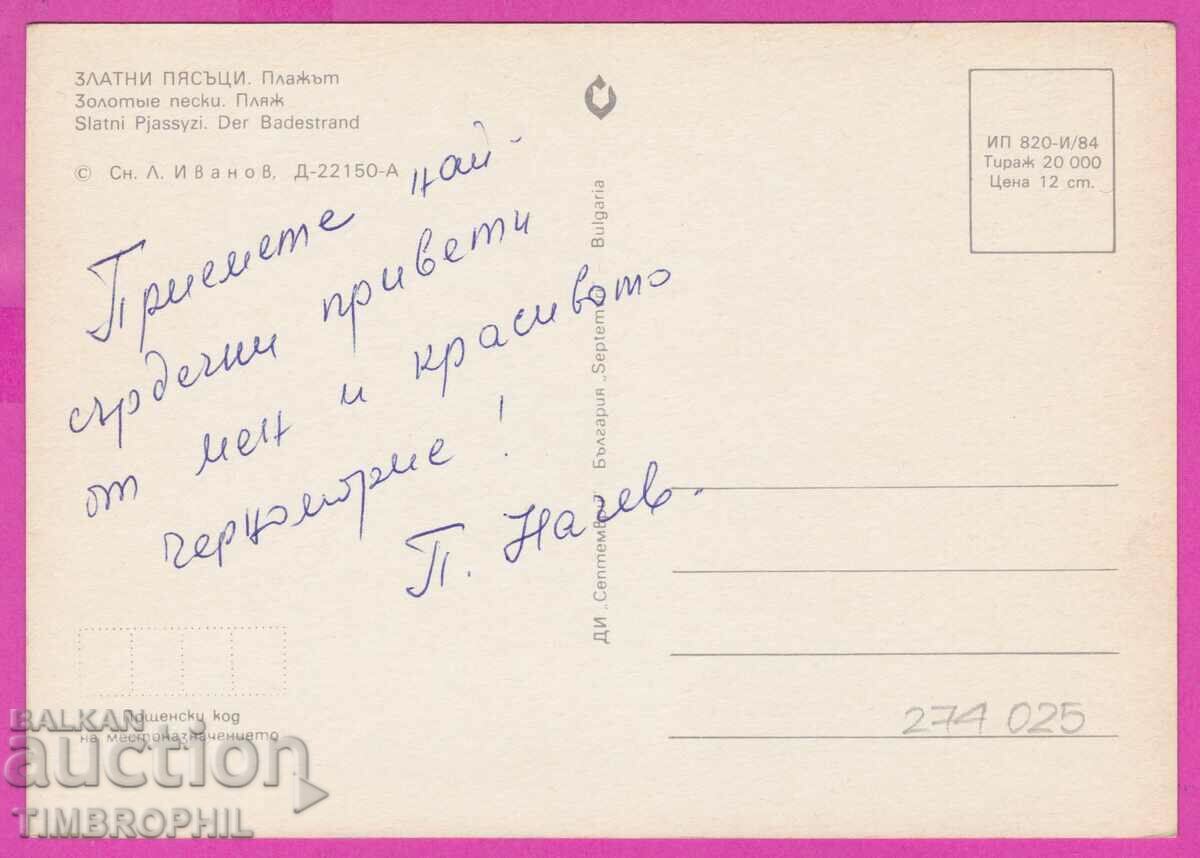 ЗЛАТНИ ПЯСЪЦИ. Плажът
Золотые пески. Пляж
Slatni Pjassyzi. Der Badestrand
© Сн. Л. Иванов, Д-22150-А
Приемете най-
сърдечни привети
от мен и красивото
черноморие!
П. Начев.
ДИ „Септември" България „Septemvri" Bulgaria
ИП 820-И/84
Тираж 20 000
Цена 12 ст.
Пощенски код
на местоназначението
274 025
BALKAN
auction
TIMBROPHIL